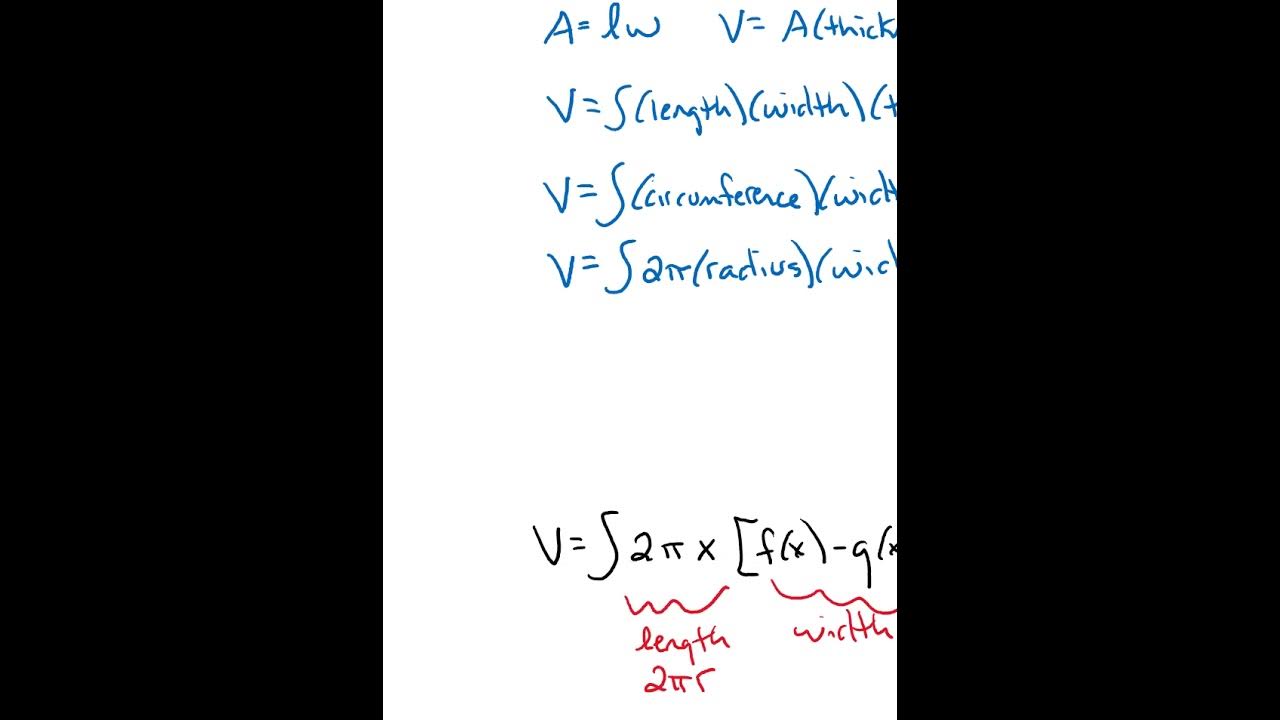 A= lw V= A(thick
V=∫(length)(width)(t
V=∫(circumference)(widt
V=∫2π(radius)(wid
V=∫2πx [f(x)-g(x
length width
2πr